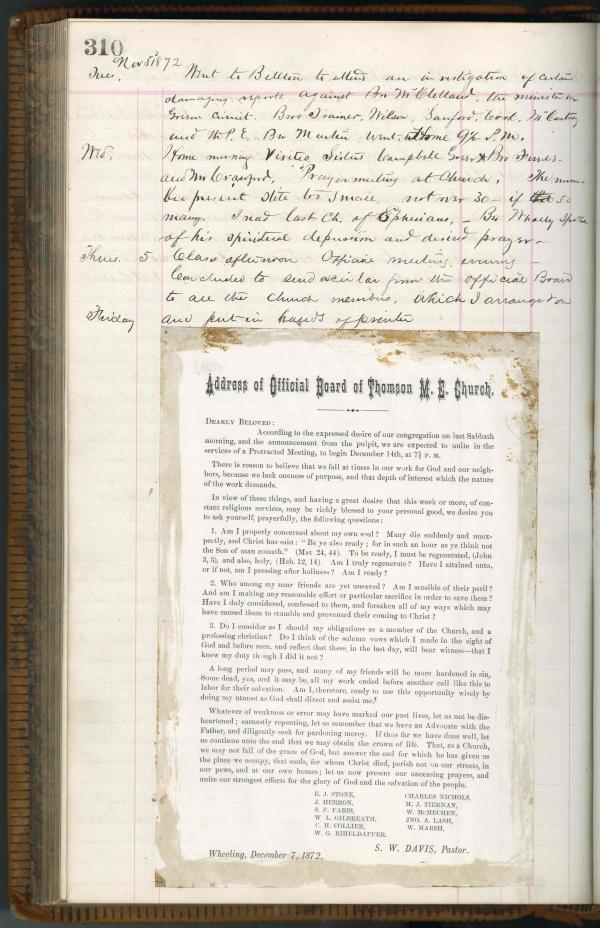 310
Nov 5th 1872
Tues. Went to Bellton to attend an investigation of certain
damaging reports against Bro McClelland, the minister in
Green circuit. Bros Trainer, Wilson, Sanford, Cool, McCarty
and the P. E. Bro Martin went. at Home 9½ P.M.
Wed. Home morning Visited Sisters Campbell & Bro
and Mr Crawford, Prayer meeting at Church. The num-
ber present still too small, not over 30 - if so
many. I read last Ch. of Ephesians, - Bro spoke
of his spiritual depression and desired prayer -
Thurs. 5 Class afternoon Official meeting evening -
Concluded to send circular from the official Board
to all the Church members, which I arranged on
Friday and put in hands of printer
Address of Official Board of Thomson M. E. Church.
DEARLY BELOVED:
According to the expressed desire of our congregation on last Sabbath
morning, and the announcement from the pulpit, we are expected to unite in the
services of a Protracted Meeting, to begin December 14th, at 7½ P. M.
There is reason to believe that we fail at times in our work for God and our neigh-
bors, because we lack oneness of purpose, and that depth of interest which the nature
of the work demands.
In view of these things, and having a great desire that this week or more, of con-
stant religious services, may be richly blessed to your personal good, we desire you
to ask yourself, prayerfully, the following questions:
1. Am I properly concerned about my own soul? Many die suddenly and unex-
pectly, and Christ has said: "Be ye also ready; for in such an hour as ye think not
the Son of man cometh." (Mat 24, 44). To be ready, I must be regenerated, (John
3, 3), and also, holy, (Heb. 12, 14). Am I truly regenerate? Have I attained unto,
or if not, am I pressing after holiness? Am I ready?
2. Who among my near friends are yet unsaved? Am I sensible of their peril?
And am I making any reasonable effort or particular sacrifice in order to save them?
Have I duly considered, confessed to them, and forsaken all of my ways which may
have caused them to stumble and prevented their coming to Christ?
3. Do I consider as I should my obligations as a member of the Church, and a
professing christian? Do I think of the solemn vows which I made in the sight of
God and before men, and reflect that these, in the last day, will bear witness—that I
knew my duty though I did it not?
A long period may pass, and many of my friends will be more hardened in sin,
Some dead, yes, and it may be, all my work ended before another call like this to
labor for their salvation. Am I, therefore, ready to use this opportunity wisely by
doing my utmost as God shall direct and assist me,
Whatever of weakness or error may have marked our past lives, let us not be dis-
heartened; earnestly repenting, let us remember that we have an Advocate with the
Father, and diligently seek for pardoning mercy. If thus far we have done well, let
us continue unto the end that we may obtain the crown of life. That, as a Church,
we may not fail of the grace of God, but answer the end for which he has given us
the place we occupy, that souls, for whom Christ died, perish not on our streets, in
our pews, and at our own homes; let us now present our unceasing prayers, and
unite our strongest efforts for the glory of God and the salvation of the people.
E. J. STONE, CHARLES NICHOLS,
J. HERRON, M. J. TIERNAN,
S. F. FARIS, W. McMECHEN,
W. L. GILBREATH, JNO. A. LASH,
C. H. COLLIER, W. MARSH,
W. G. RIHELDAFFER.
S. W. DAVIS, Pastor.
Wheeling, December 7, 1872.